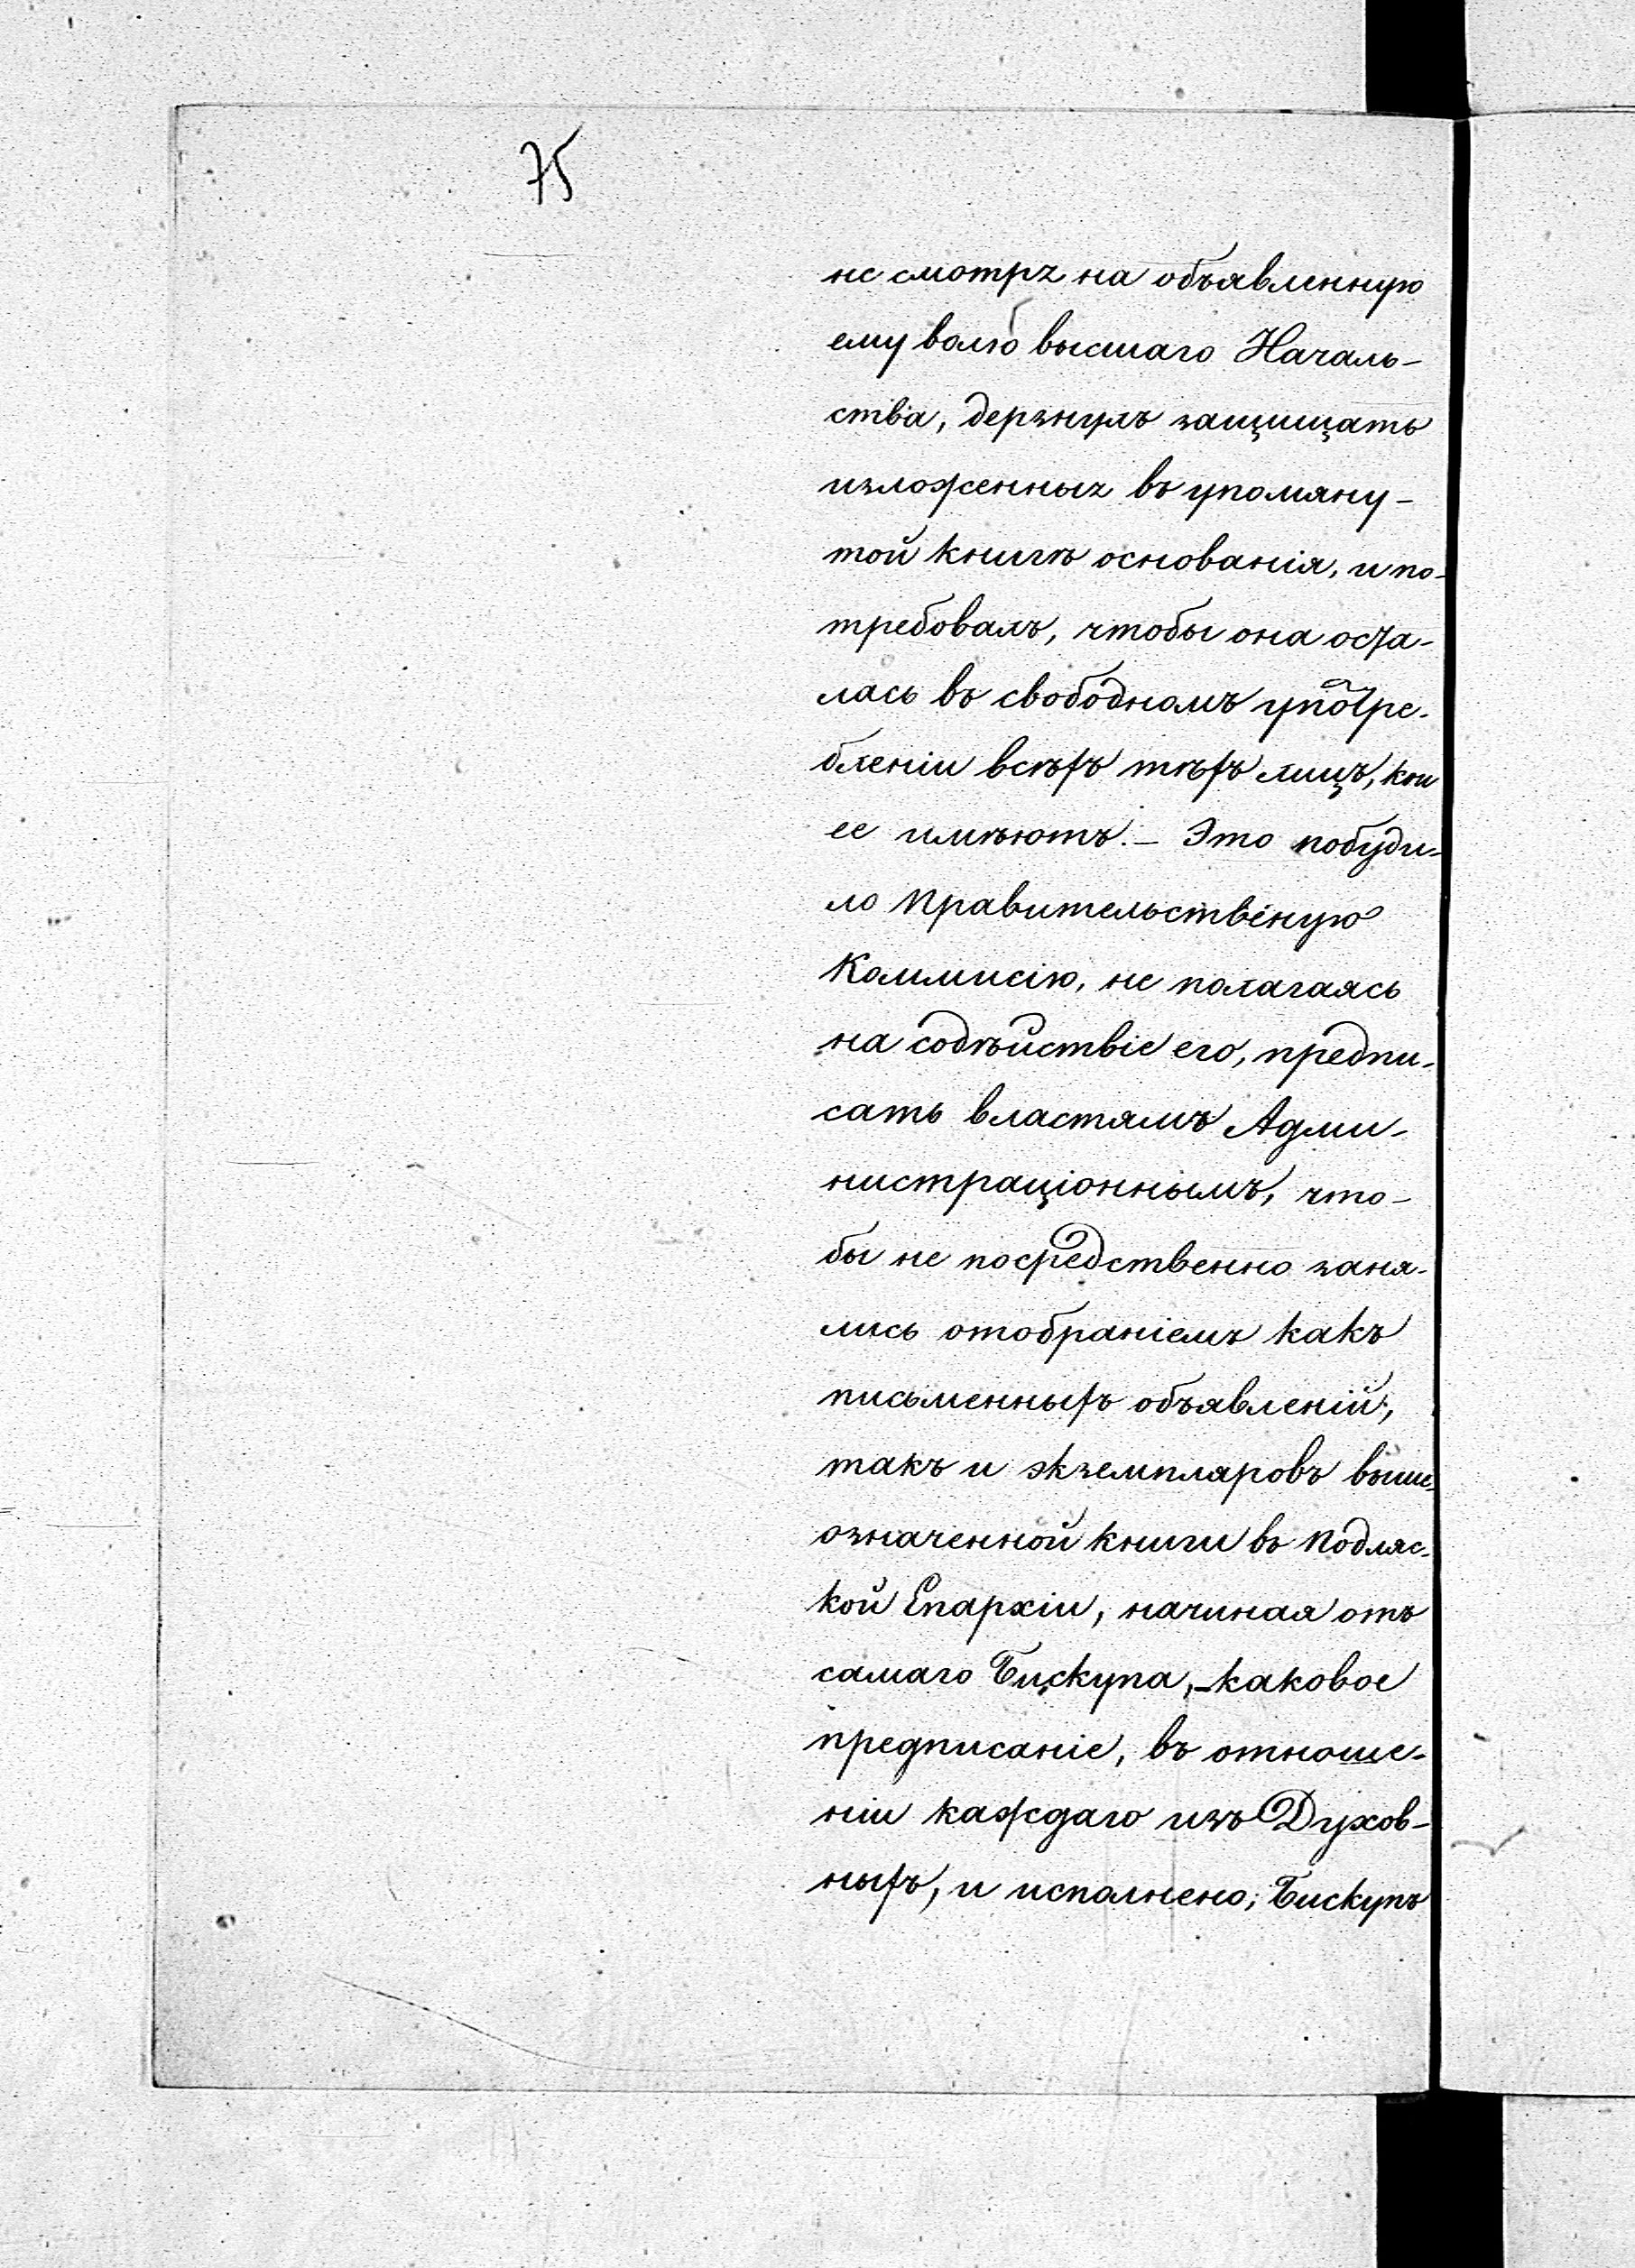 75
не смотря на объявленную
ему волю высшаго Началь-
ства, дерзнулъ защищать
изложенныя въ упомяну-
той книгѣ основанія, и по-
требовалъ, чтобы она оста-
лась въ свободномъ употре-
бленіи всѣхъ тѣхъ лицъ, кои
ее имѣютъ. — Это побуди-
ло Правительственую
Коммисію, не полагаясь
на содѣйствіе его, предпи-
сать властямъ Адми-
нистраціоннымъ, что-
бы не посредственно заня-
лись отобраніемъ какъ
письменныхъ объявленій,
такъ и экземпляровъ выше-
означенной книги въ Подляс-
кой Епархіи, начиная отъ
самаго Бискупа, — каковое
предписаніе, въ отноше-
ніи каждаго изъ Духов-
ныхъ, и исполнено; Бискупъ